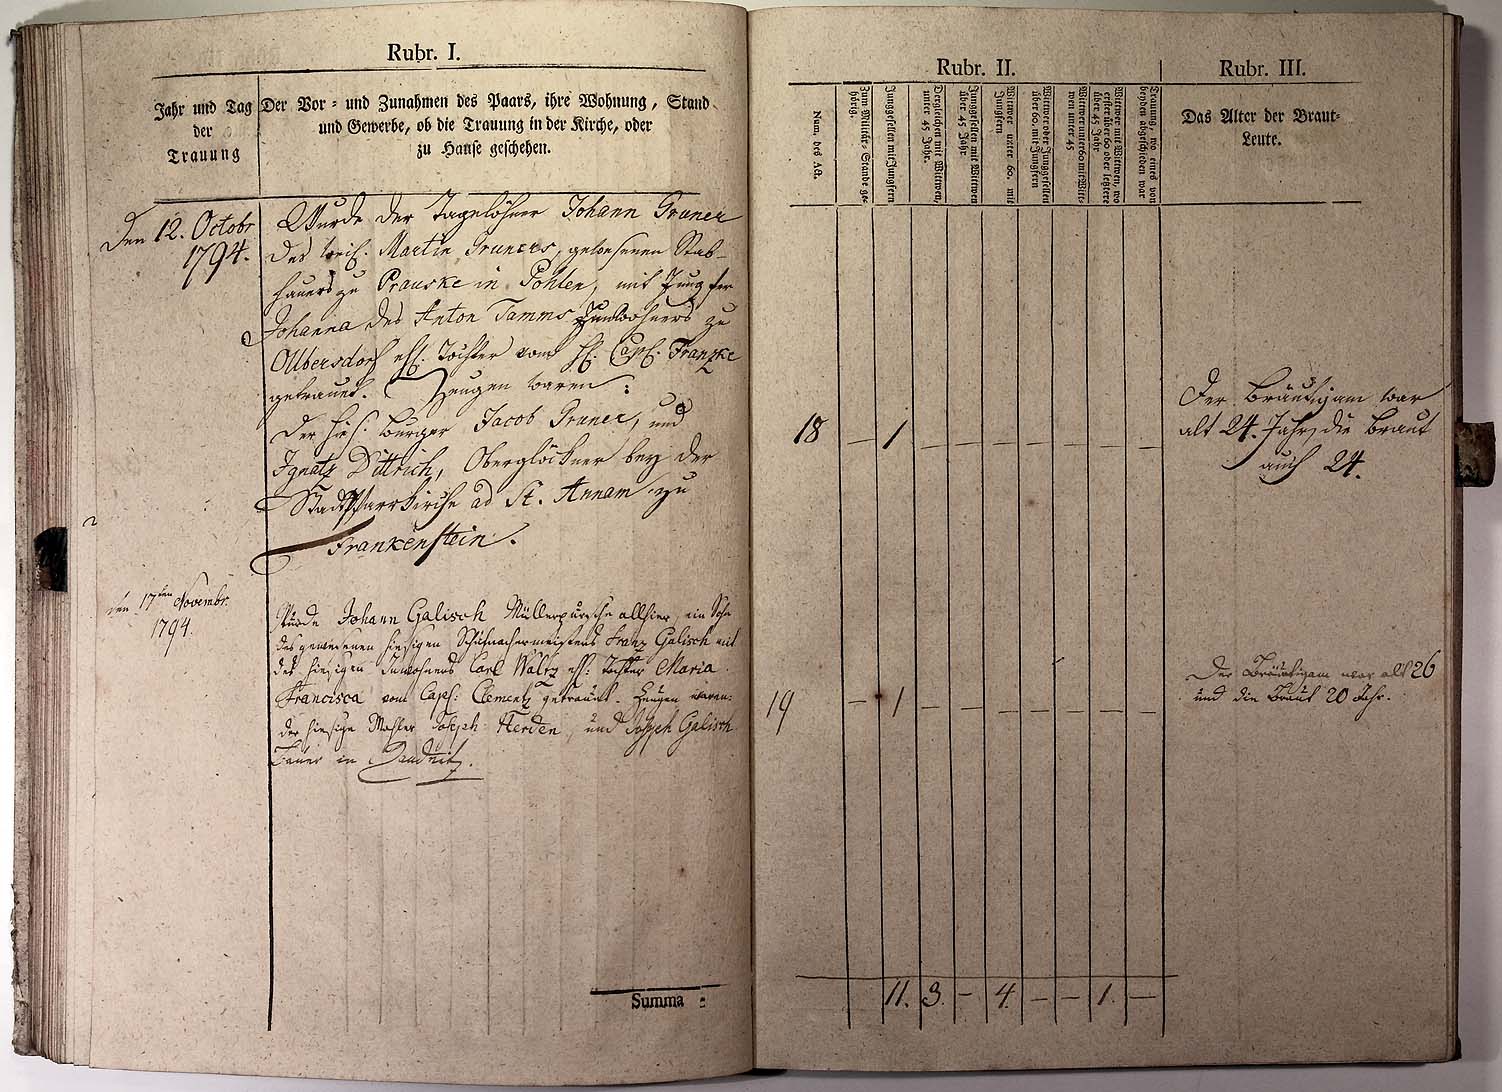 Rubr. I.
Jahr und Tag
der
Trauung
Der Vor- und Zunahmen des Paars, ihre Wohnung, Stand
und Gewerbe, ob die Trauung in der Kirche, oder
zu Hause geschehen.
Den 12. Octobr
1794.
Wurde der Tagelöhner Johann Gruner
des Martin Gruners, gewesenen Stab-
hauers zu Prauske in Pohlen, mit Jungfer
Johanna des Anton Tamms Inwohners zu
Olbersdorf ehl. Tochter vom H. Capl. Franzke
getraut. Zeugen waren:
Der hies. Burger Jacob Gruner, und
Ignatz Dittrich, Oberglöckner bey der
Stadtpfarrkirche ad St. Annam zu
Frankenstein.
den 17ten Novembr.
1794.
Wurde Johann Galisch Müllerpursche allhier, ein Sohn
des gewesenen hiesigen Schuhmachermeisters Franz Galisch mit
des hiesigen Inwohners Carl Waltz ehl. Tochter Maria
Francisca vom Capl. Clementz getraut. Zeugen waren:
der hiesige Mahler Joseph Herden, und Joseph Galisch
Bauer in
Summa
Rubr. II.
Num. des Act.
Zum Militär-Stande ge-
hörig.
Junggesellen mit Jungfern
Dergleichen mit Wittwen,
unter 45 Jahr.
Junggesellen mit Wittwen
über 45 Jahr
Wittwer unter 60. mit
Jungfern
Wittwer oder Junggesellen
über 60. mit Jungfern
Wittwer unter 60 mit Witt-
wen unter 45
Wittwer mit Wittwen, wo
erster über 60 oder letztere
über 45 Jahr
Trauung, wo eines von
beyden abgeschieden war
18 — 1 — — — — — — —
19 — 1 — — — — — — —
11. 3. — 4. — — 1. —
Rubr. III.
Das Alter der Braut-
Leute.
Der Bräutigam war
alt 24. Jahr, die Braut
auch 24.
Der Bräutigam war alt 26
und die Braut 20 Jahr.